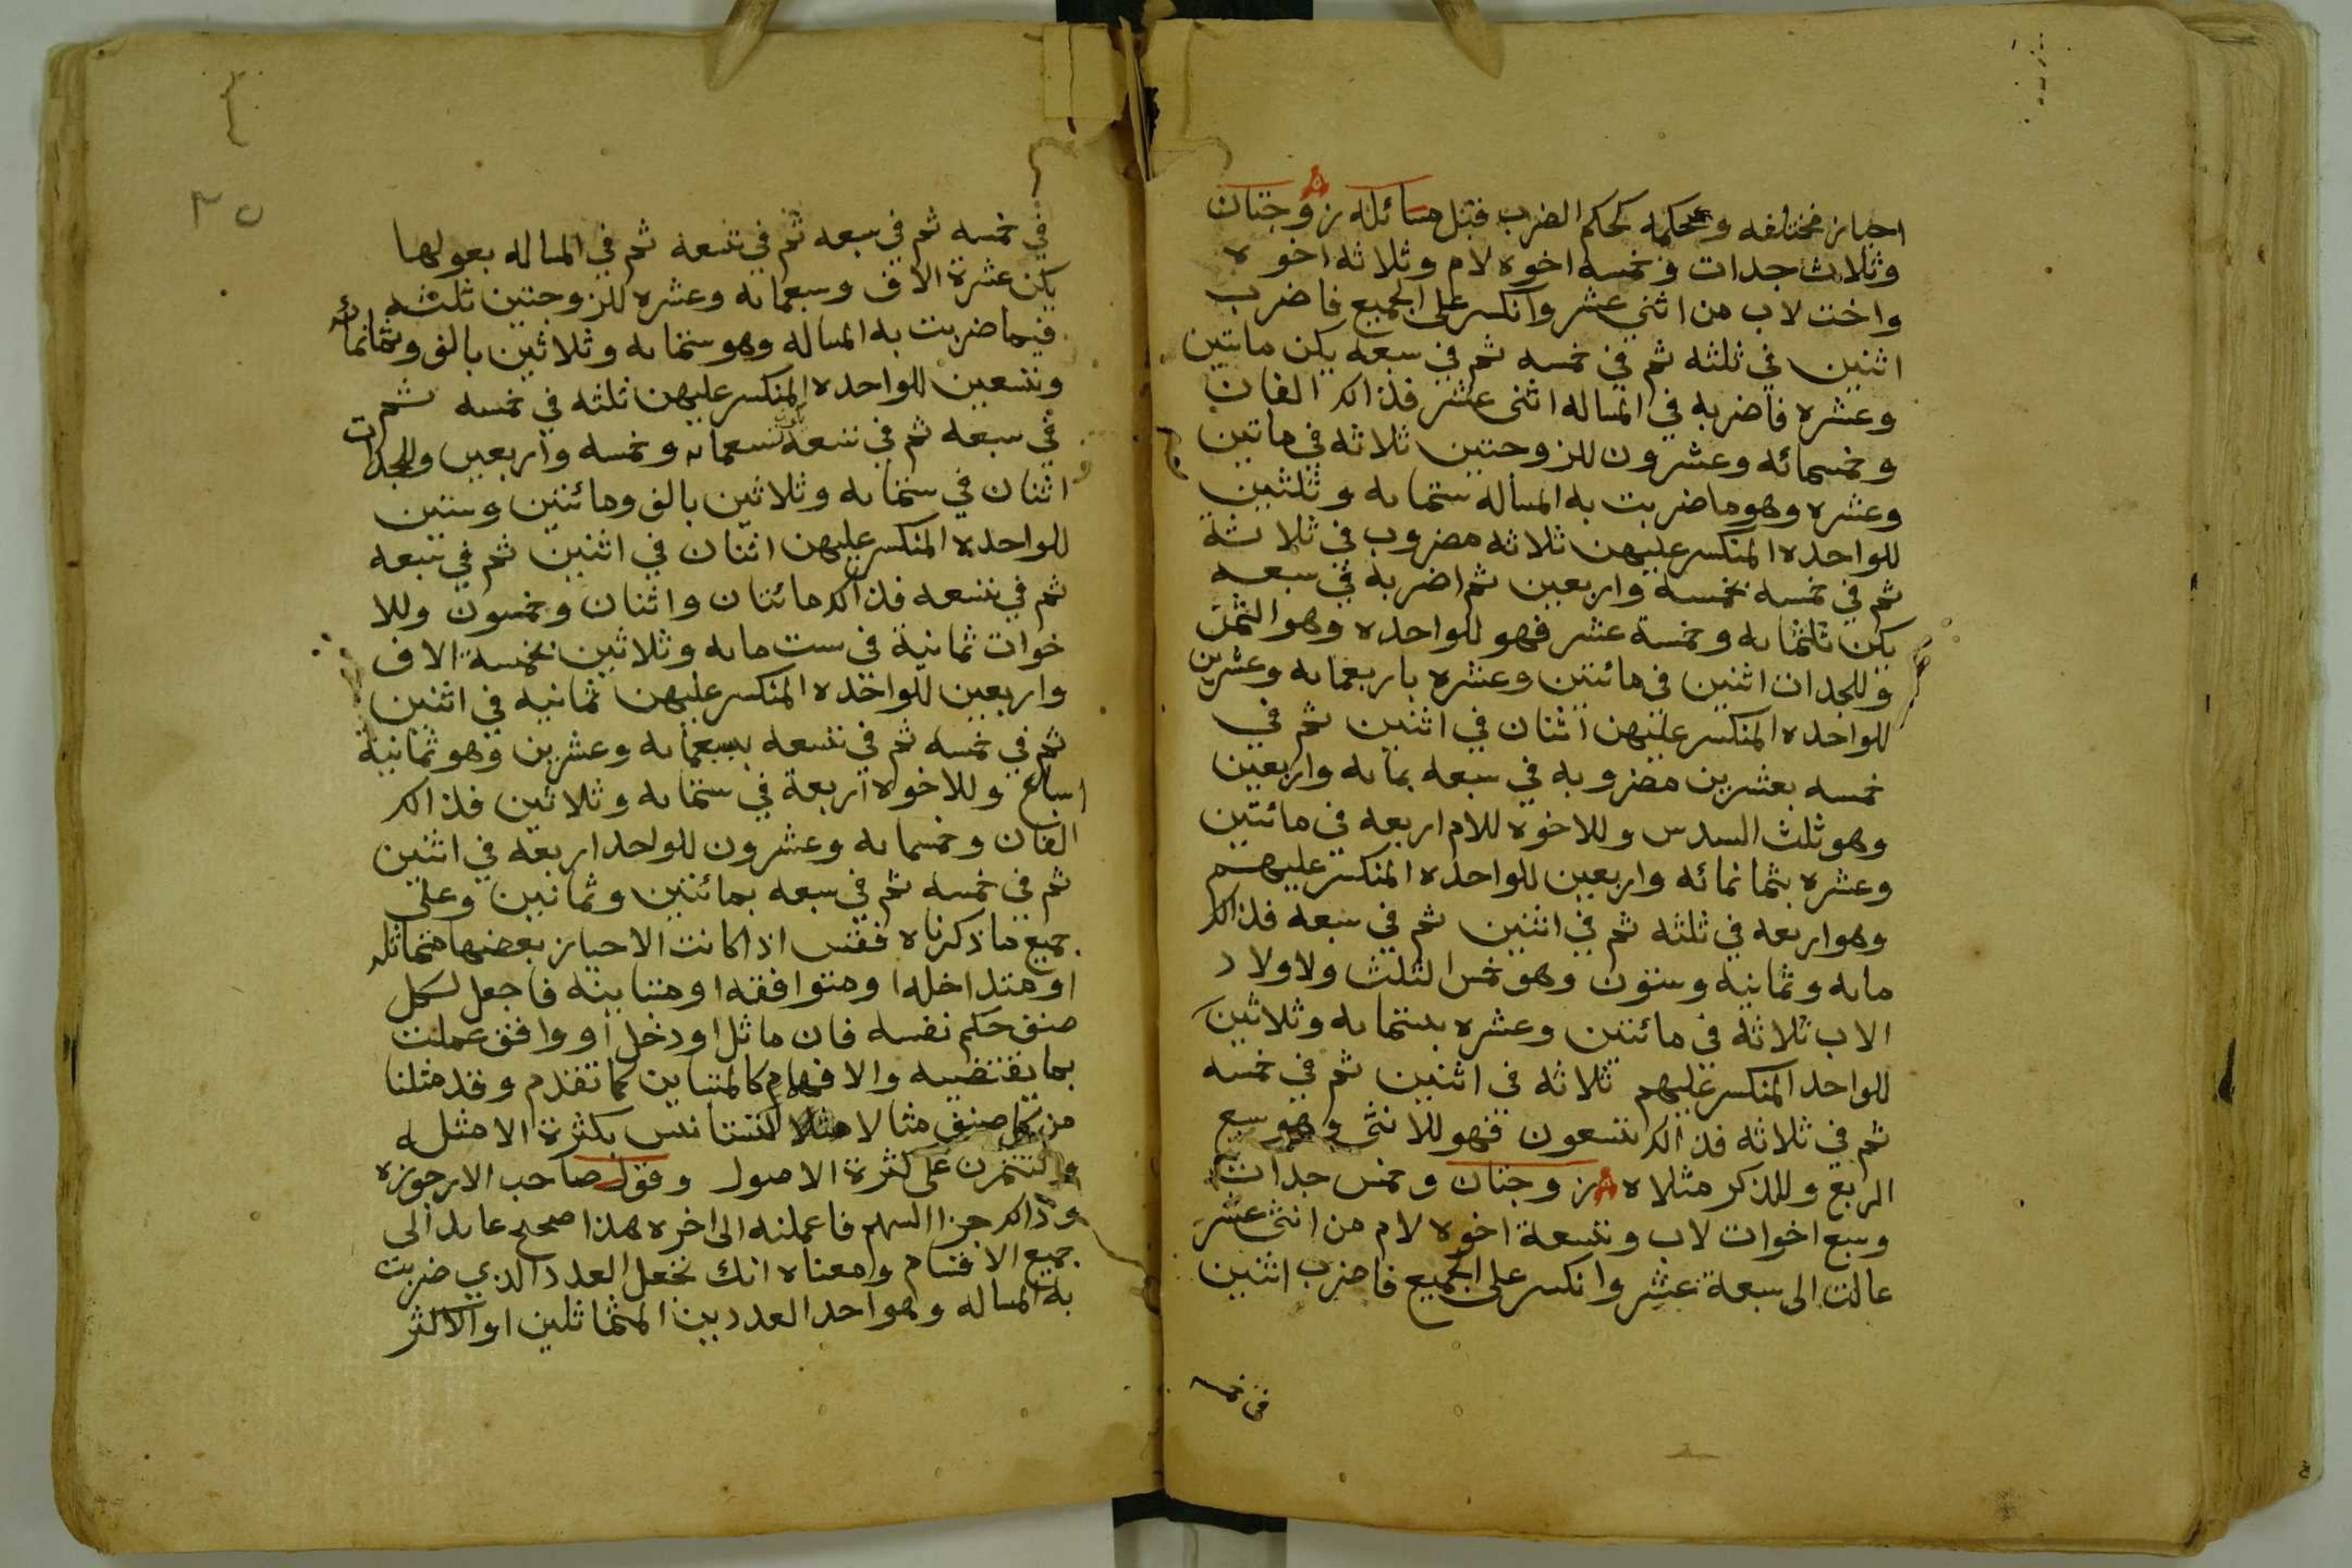 احياز مختلفه وحكمه كحكم الضرب قبل مسائله زوجتان
وثلاث جدات وخمسه اخوه لام وثلاثه اخوه
واخت لاب من اثني عشر وانكسر على الجميع فاضرب
اثنين في ثلثه ثم في خمسه ثم في سبعه يكن ماتين
وعشره فاضربه في المساله اثنى عشر فذالك الفان
وخمسمائه وعشرون للزوجتين ثلاثه في ماتين
وعشره وهو ما ضربت به المسأله ستمايه وثلثين
للواحده المنكسر عليهن ثلاثه مضروب في ثلاثة
ثم في خمسه بخمسه واربعين ثم اضربه في سبعه
يكن ثلثمايه وخمسة عشر فهو للواحده وهو الثمن
وللجدات اثنين في مائتين وعشره باربعمايه وعشرين
للواحده المنكسر عليهن اثنان في اثنين ثم في
خمسه بعشرين مضروبه في سبعه بمايه واربعين
وهو ثلث السدس وللاخوه للام اربعه في مائتين
وعشره بثمانمائه واربعين للواحده المنكسر عليهم
وهو اربعه في ثلثه ثم في اثنين ثم في سبعه فذالك
مايه وثمانيه وستون وهو خمس الثلث ولاولاد
الاب ثلاثة في مائتين وعشره بستمايه وثلاثين
للواحد المنكسر عليهم ثلاثه في اثنين ثم في خمسه
ثم في ثلاثه فذالك تسعون فهو للانثى وهو سبع
الربع وللذكر مثلاه زوجتان وخمس جدات
وسبع اخوات لاب وتسعة اخوه لام من اثنى عشر
عالت الى سبعة عشر وانكسر على الجميع فاضرب اثنين
في خمسه
٢٥
في خمسه ثم في سبعه ثم في تسعه ثم في المساله بعولها
يكن عشرة الاف وسبعمايه وعشره للزوجتين ثلثه
فيما ضربت به المساله وهو ستمايه وثلاثين بالف وثمانمائه
وتسعين للواحده المنكسر عليهن ثلثه في خمسه ثم
في سبعه ثم في تسعه تسعمايه وخمسه واربعين وللجدات
اثنان في ستمايه وثلاثين بالف ومائتين وستين
للواحده المنكسر عليهن اثنان في اثنين ثم في سبعه
ثم في تسعه فذالك مائتان واثنان وخمسون وللا
خوات ثمانية في ست مايه وثلاثين بخمسة الاف
واربعين للواحده المنكسر عليهن ثمانيه في اثنين
ثم في خمسه ثم في تسعه بسبعمايه وعشرين وهو ثمانية
اسباع وللاخوه اربعة في ستمايه وثلاثين فذالك
الفان وخمسمايه وعشرون للواحد اربعه في اثنين
ثم في خمسه ثم في سبعه بمائتين وثمانين وعلى
جميع ما ذكرناه فقس اذا كانت الاحياز بعضها متماثله
او متداخله او متوافقه او متباينه فاجعل لكل
صنف حكم نفسه فان ماثل او دخل او وافق عملت
بما يقتضيه والا فهام كالمتباين كما تقدم وقد مثلنا
من كل صنف مثالا لتستانس بكثرة الامثله
ولتتمرن على كثرة الاصول وقول صاحب الارجوزه
وذالك جزا السهم فاعملنه الى اخره هذا صحيح عايد الى
جميع الاقسام ومعناه انك تجعل العدد الذي ضربت
به المساله وهو احد العددين المتماثلين او الاكثر